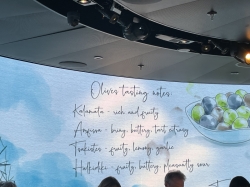 Olives tasting notes:
Kalamata - rich and fruity
Amfissa - briny, buttery, tart citrusy
Tsakistes - fruity, lemony, garlic
Halkidiki - fruity, buttery, pleasantly sour